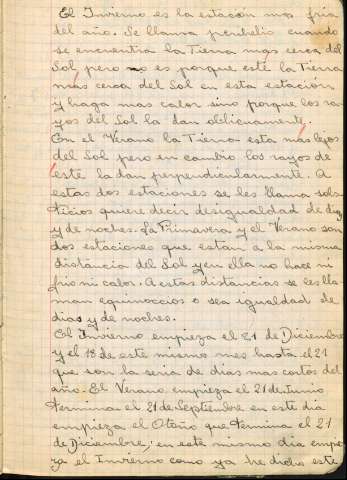 El Invierno es la estación mas fria
del año. Se llama perihelio cuando
se encuentra la Tierra mas cerca del
Sol pero no es porque esté la Tierra
más cerca del Sol en esta estación
y haga mas calor sino porque los ra-
yos del Sol la dan oblicuamente.
En el Verano la Tierra esta más lejos
del Sol pero en cambio los rayos de
éste la dan perpendicularmente. A
estas dos estaciones se les llama sols-
ticios quiere decir desigualdad de dias
y de noches. La Primavera y el Verano son
dos estaciones que estan a la misma
distancia del Sol y en ella no hace ni
frio ni calor. A estas distancias se les lla
man equinoccios o sea igualdad de
dias y de noches.
El Invierno empieza el 21 de Diciembre
y el 18 de este mismo mes hasta el 21
que son la seria de dias mas cortos del
año. El Verano empieza el 21 de Junio
termina el 21 de Septiembre en este dia
empieza el Otoño que termina el 21
de Diciembre, en este mismo dia empie
za el Invierno como ya he dicho este